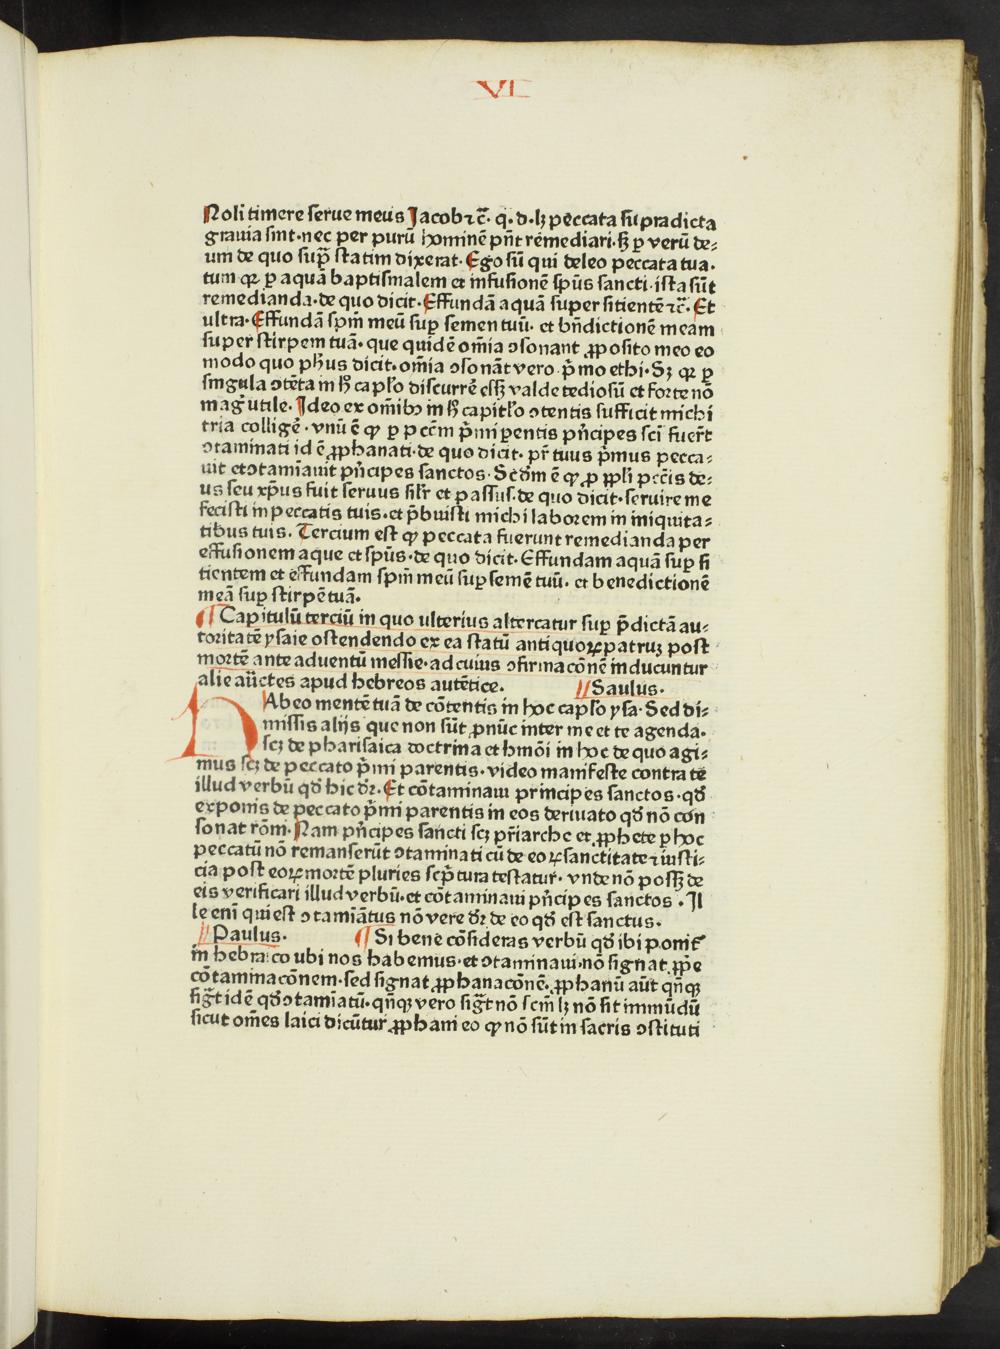 VI
Noli timere serue meus Jacob ⁊ c̄. q. d. lꝫ peccata supradicta
grauia sint. nec per purū hominē pn̄t remediari. sꝫ ꝑ verū de⸗
um de quo sup̄ statim dixerat. Ego sū qui deleo peccata tua.
tum qꝛ ꝑ aquā baptismalem et infusionē sp̄us sancti. ista sūt
remedianda. de quo dicit. Effundā aquā super sitientē ⁊c̄. Et
ultra. Effundā spm̄ meū sup̱ semen tuū. et bn̄dictionē meam
super stirpem tuā. que quidē om̄ia ↄsonant ꝓposito meo eo
modo quo ph̄us dicit. om̄ia ↄsonāt vero. p̄mo ethi. Sꝫ qꝛ ꝑ
singula ↄtēta in h̄ cap̄lo discurrē essꝫ valde tediosū et forte nō
maḡ utile. Ideo ex om̄ibꝫ in h̄ capitl̄o ↄtentis sufficit michi
tria colligē. vnū ē ꝙ ꝑ pccm̄ p̄mi ꝑentis pn̄cipes sci fuer̄t
ↄtaminati id ē ꝓphanati. de quo dicit. pr̄ tuus p̄mus pecca⸗
uit et ↄtamīauit pn̄cipes sanctos. Scd̄m ē ꝙ ꝓ ppl̄i pcc̄is de⸗
us seu xp̄us fuit seruus sil̄r et passus. de quo dicit. seruire me
fecisti in peccatis tuis. et p̄buisti michi laborem in iniquita⸗
tibus tuis. Tercium est ꝙ peccata fuerunt remedianda per
effusionem aque et sp̄us. de quo dicit. Effundam aquā sup̱ si
tientem et effundam spm̄ meū sup̱ semē tuū. et benedictionē
meā sup̱ stirpē tuā.
¶ Capitulū terciū in quo ulterius altercatur sup̱ p̄dictā au⸗
toritatē ysaie ostendendo ex ea statū antiquoꝝ patruꝫ post
mortē ante aduentū messie. ad cuius ↄfirmacōnē inducuntur
alie auc̄tes apud hebreos autētice. // Saulus.
HAbeo mentē tuā de cōtentis in hoc cap̄lo ysa. Sed di⸗
missis alijs que non sūt ꝓnūc inter me et te agenda.
scꝫ de pharisaica doctrina et hmōi in hoc de quo agi⸗
mus scꝫ de peccato p̄mi parentis. video manifeste contra te
illud verbū qd̄ hic dr̄. Et cōtaminaui principes sanctos. qd̄
exponis de peccato p̄mi parentis in eos deriuato qd̄ nō con
sonat rōm. Nam pn̄cipes sancti scꝫ pr̄iarche et ꝓphete ꝑ hoc
peccatū nō remanserūt ↄtaminati cū de eoꝝ sanctitate ⁊ iusti⸗
cia post eoꝝ mortē pluries scp̄tura testatur. vnde nō possꝫ de
eis verificari illud verbū. et cōtaminaui pn̄cipes sanctos. Il
le eni qui est ↄtamiātus nō vere dr̄ de eo qd̄ est sanctus.
// Paulus. ¶ Si bene cōsideras verbū qd̄ ibi ponit̄
in hebraico ubi nos habemus. et ↄtaminaui. nō signat ꝓp̄e
cōtaminacōnem. sed signat ꝓphanacōnē. ꝓphanū aūt qn̄qꝫ
siḡt idē qd̄ ↄtamīatū. qn̄qꝫ vero siḡt nō scm̄ lꝫ nō sit immūdū
sicut om̄es laici dicūtur ꝓphani eo ꝙ nō sūt in sacris ↄstituti